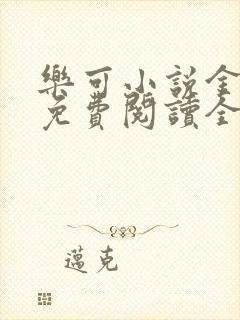 樂可小說全
免費閱讀全
邁克